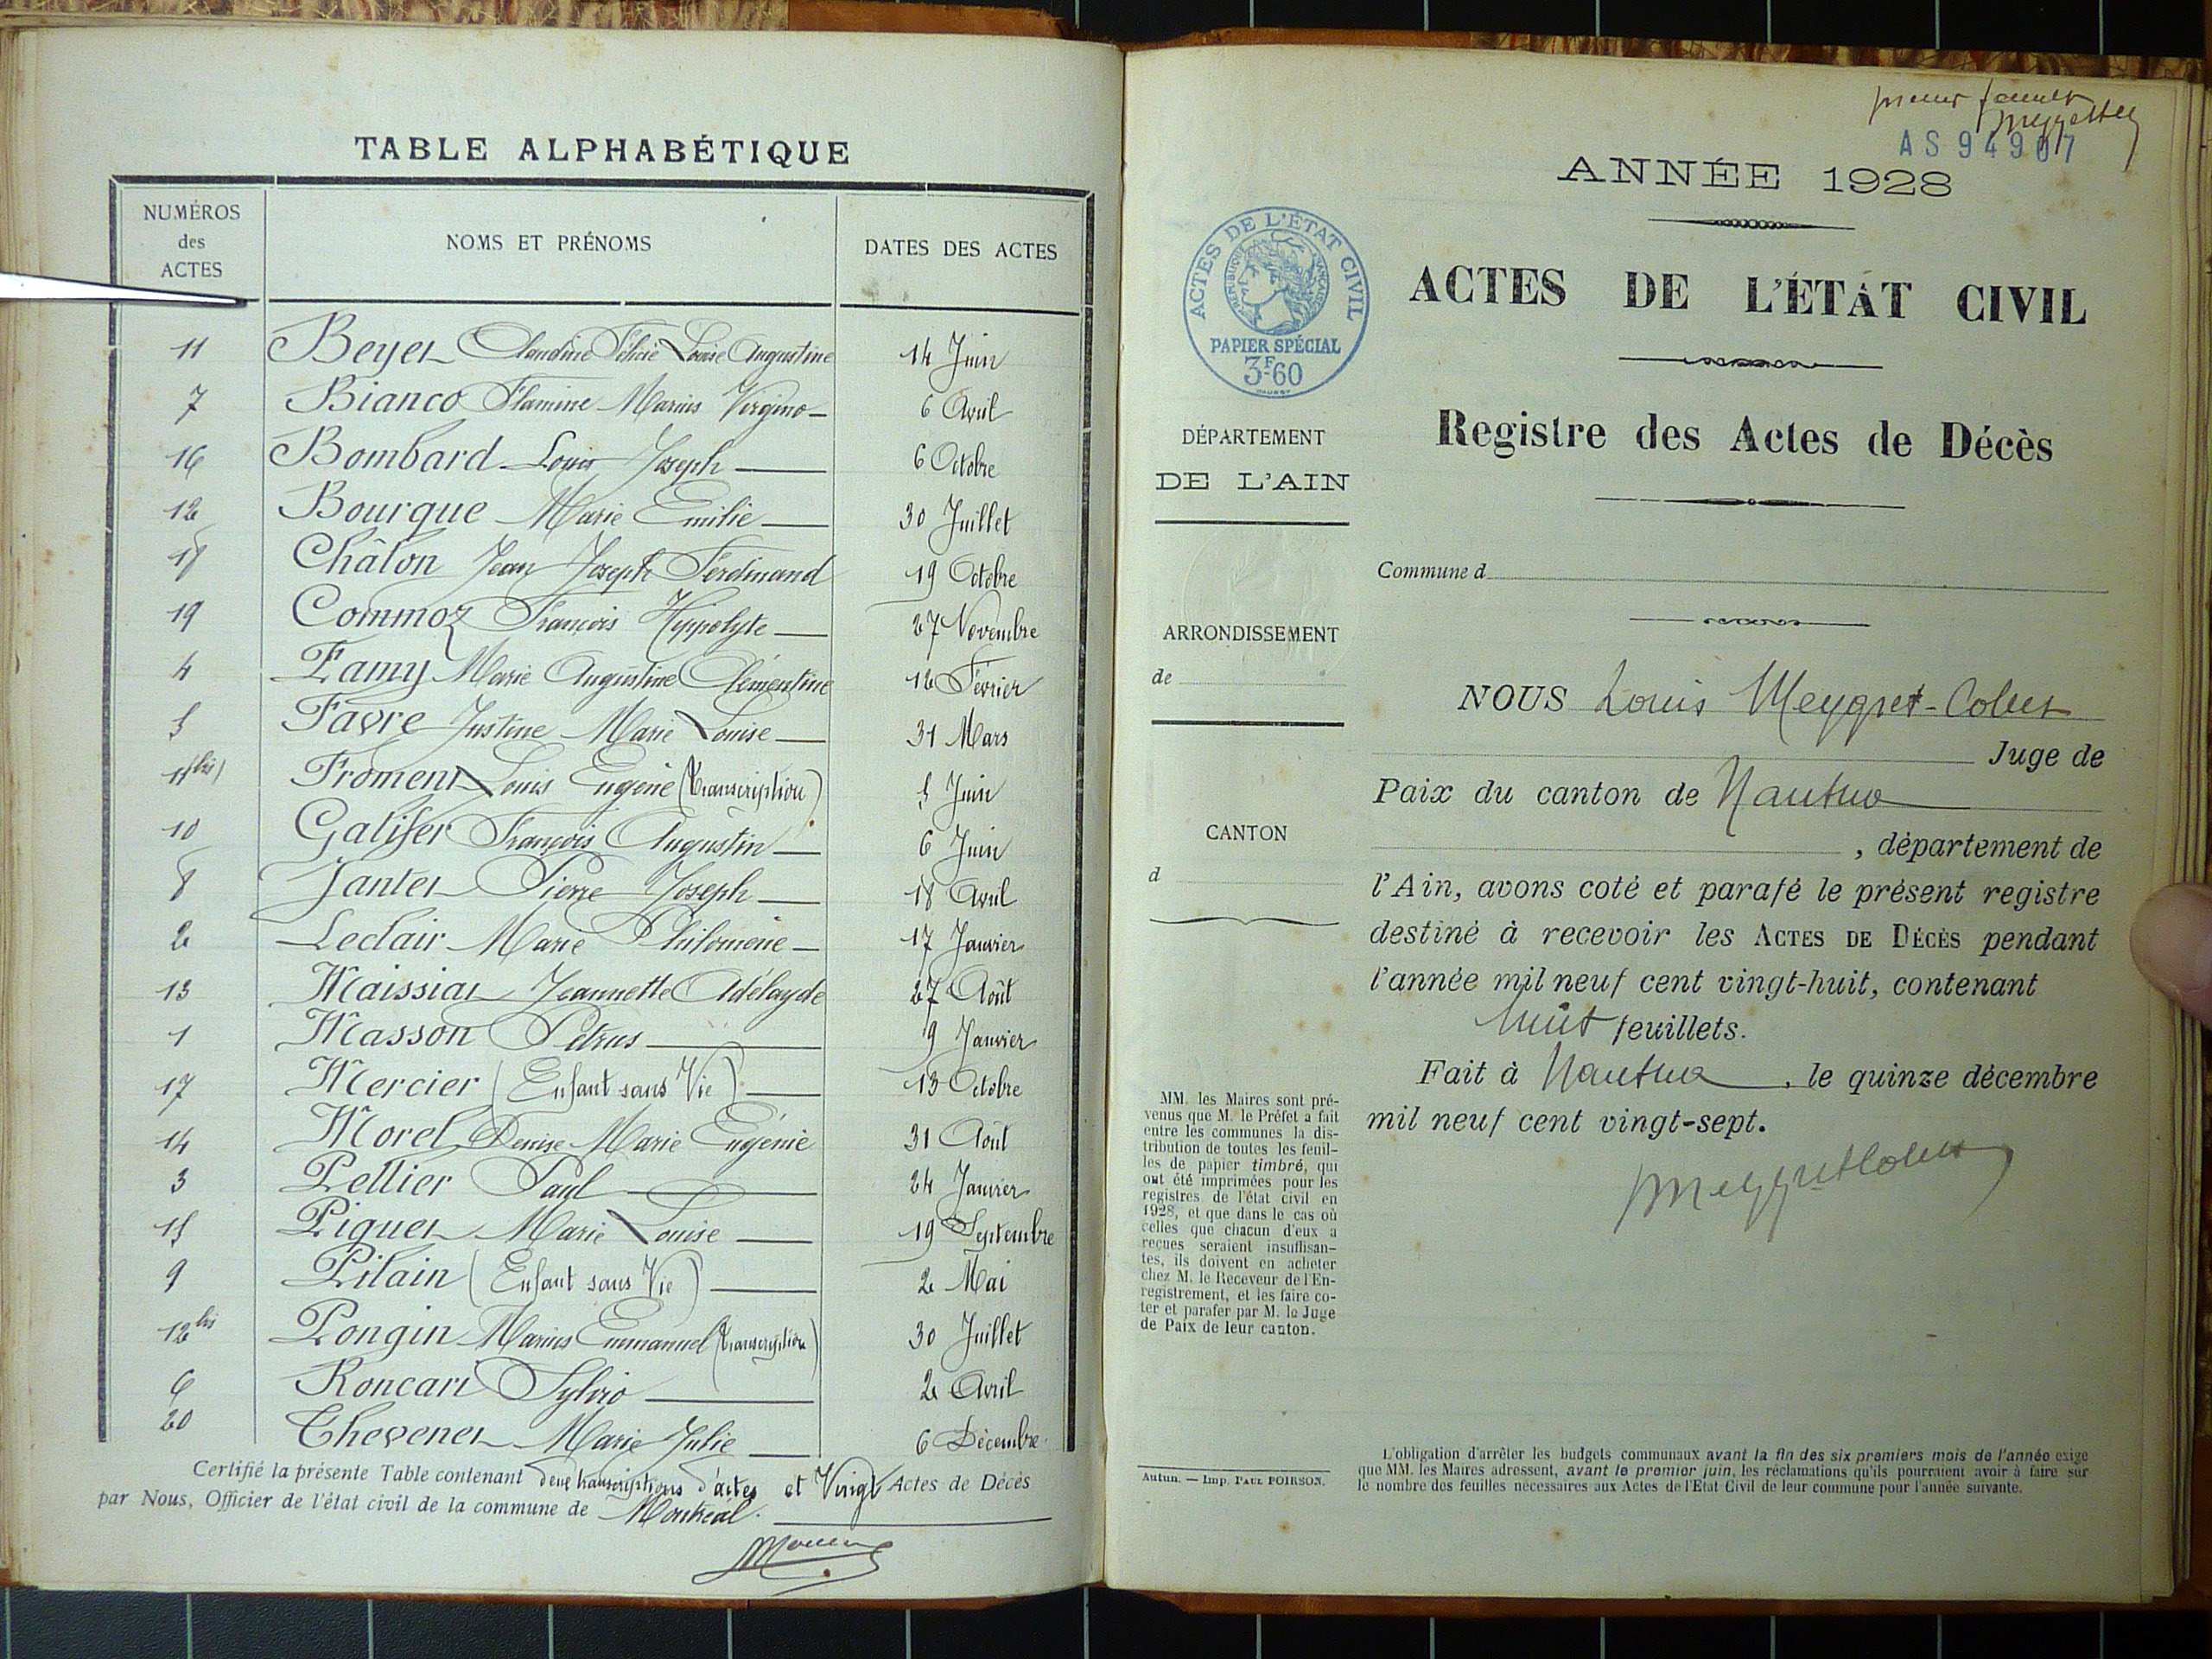 TABLE ALPHABÉTIQUE
NUMÉROS des ACTES NOMS ET PRÉNOMS DATES DES ACTES
11 Beyer Claudine Félicie Louise Augustine 14 Juin
7 Bianco Flamine Marius Virgino 6 Avril
16 Bombard Louis Joseph 6 Octobre
12 Bourgue Marie Emilie 30 Juillet
18 Châlon Jean Joseph Ferdinand 19 Octobre
19 Commoz François Hippolyte 27 Novembre
4 Famy Marie Augustine Clémentine 12 Février
5 Favre Justine Marie Louise 31 Mars
bis Froment Louis Eugène (transcription) 5 Juin
10 Galifer François Augustin 6 Juin
8 Janter Pierre Joseph 18 Avril
2 Leclair Marie Philomène 17 Janvier
13 Maissiar Jeannette Adélayde 27 Août
1 Masson Pétrus 9 Janvier
17 Mercier (Enfant sans Vie) 13 Octobre
14 Morel Denise Marie Eugénie 31 Août
3 Pellier Paul 24 Janvier
15 Piguet Marie Louise 19 Septembre
9 Pilain (Enfant sans Vie) 2 Mai
12 bis Pongin Marius Emmanuel (transcription) 30 Juillet
6 Roncari Sylvio 2 Avril
20 Thevenet Marie Julie 6 Décembre
Certifié la présente Table contenant deux transcriptions d'actes et Vingt Actes de Décès
par Nous, Officier de l'état civil de la commune de Montréal.
premier
AS 94907
ANNÉE 1928
ACTES DE L'ÉTAT CIVIL
RÉPUBLIQUE FRANÇAISE
PAPIER SPÉCIAL
3F-60
ACTES DE L'ÉTAT CIVIL
Registre des Actes de Décès
DÉPARTEMENT
DE L'AIN
Commune d
ARRONDISSEMENT
de
CANTON
d
NOUS Louis Meygret-Collet
Juge de
Paix du canton de Nantua
, département de
l'Ain, avons coté et parafé le présent registre
destiné à recevoir les ACTES DE DÉCÈS pendant
l'année mil neuf cent vingt-huit, contenant
huit feuillets.
Fait à Nantua, le quinze décembre
mil neuf cent vingt-sept.
MeygretCollet
MM. les Maires sont pré-
venus que M. le Préfet a fait
entre les communes la dis-
tribution de toutes les feuil-
les de papier timbré, qui
ont été imprimées pour les
registres de l'état civil en
1928, et que dans le cas où
celles que chacun d'eux a
reçues seraient insuffisan-
tes, ils doivent en acheter
chez M. le Receveur de l'En-
registrement, et les faire co-
ter et parafer par M. le Juge
de Paix de leur canton.
Autun. — Imp. PAUL POIRSON.
L'obligation d'arrêter les budgets communaux avant la fin des six premiers mois de l'année exige
que MM. les Maires adressent, avant le premier juin, les réclamations qu'ils pourraient avoir à faire sur
le nombre des feuilles nécessaires aux Actes de l'Etat Civil de leur commune pour l'année suivante.